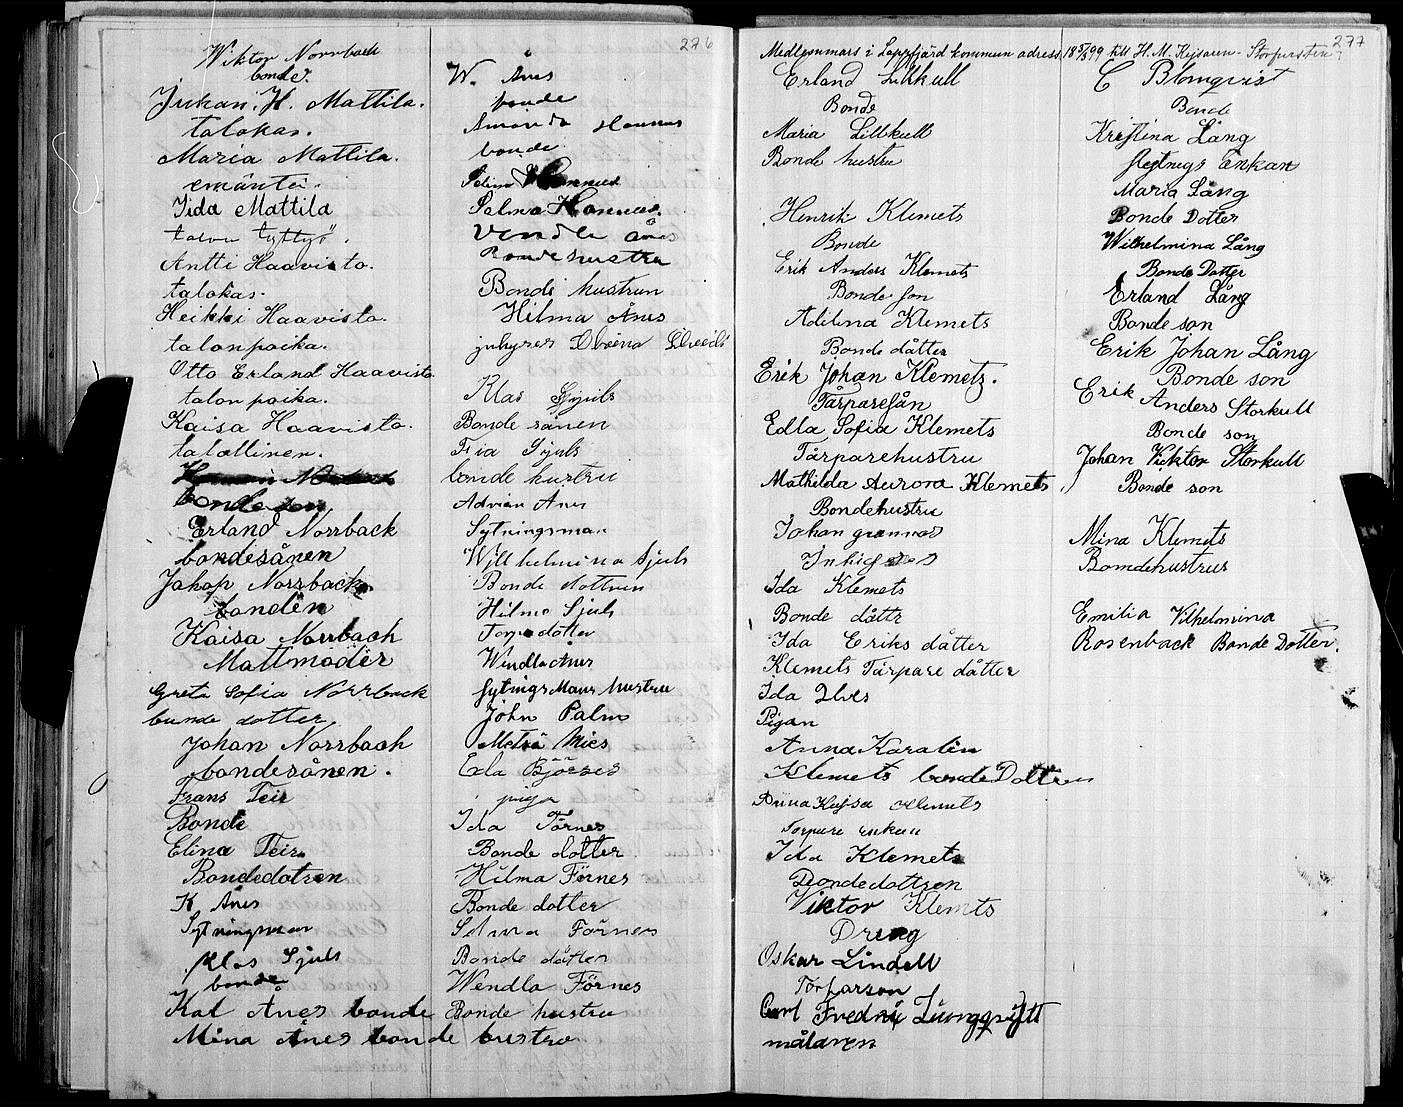 276
Wiktor Norrback
bonde.
Juhan. H. Mattila.
talokas.
Maria Mattila.
emäntä.
Iida Mattila
talon tyttyö.
Antti Haavisto.
talokas.
Heikki Haavisto.
talonpoika.
Otto Erland Haavisto
talon poika.
Kaisa Haavisto.
talollinen.
bonde son
Erland Norrback
bondesånen
Jakop Norrback
bonden
Kaisa Norrbach
Mattmoder
Greta Sofia Norrback
bunde dotter,
Johan Norrbach
bondesånen.
Frans Teir
Bonde
Elina Teir
Bondedotren
K Ånes
Sytningsman
Klas Sjuls
bonde
Kal Ånes bonde
Mina Ånes bonde hustro
W. Ånes
bonde
Amanda Hannus
bonde
Selina Hannus
Salma Hannus.
Vendla Ånes
Bondehustru
Bonde hustrun
Hilma Ånes
inhyses
Klas Sjuls
Bonde sånen
Fia Sjuls
bonde hustru
Adrian Anes
Sytningsman
Willhelmina Sjuls
Bonde dottren
Hilma Sjuls
Torpedotter
Wendla Anes
Sytnings Mans hustru
John Palm
Mies
Eda Björses
piga
Ida Förnes
Bonde dotter
Hilma Förnes
Bonde dotter
Selma Förnes
Bonde dåtter
Wendla Förnes
Bonde hustru
277
Medlemmars i Lappfjärd kommun adress 18 5/3 99 till H. M. Kejsaren-Storfursten
Erland Lillkull
Bonde
Maria Lillkull
Bonde hustru
Henrik Klemets
Bonde
Erik Anders Klemets
Bonde son
Adilina Klemets
Bonde dåtter
Erik Johan Klemets.
Tårparesån
Edla Sofia Klemets
Tårparehustru
Mathilda Aurora Klemets,
Bondehustru
Johan grannas
Inhises
Ida Klemets
Bonde dåttr
Ida Eriks dåtter
Klemets Tårpare dåtter
Ida Ilves
Pigan
Anna Karalin
Klemets bonde Dottren
Anna Kajsa Klemets
Torpare enkan
Ida Klemets
Bondedottren
Viktor Klemets
Dreng
Oskar Lindell
Torparson
Carl Fredrik Ljungqvist
målaren
C Blomqvist
Bonde
Kristina Lång
sytnings Enkan
Maria Lång
Bonde Dotter
Wilhelmina Lång
Bonde Dotter
Erland Lång
Bonde son
Erik Johan Lång
Bonde son
Erik Anders Storkull
Bonde son
Johan Viktor Storkull
Bonde son
Mina Klemets
Bomdehustrus
Emilia Vilhelmina
Rosenback Bonde Dotter.